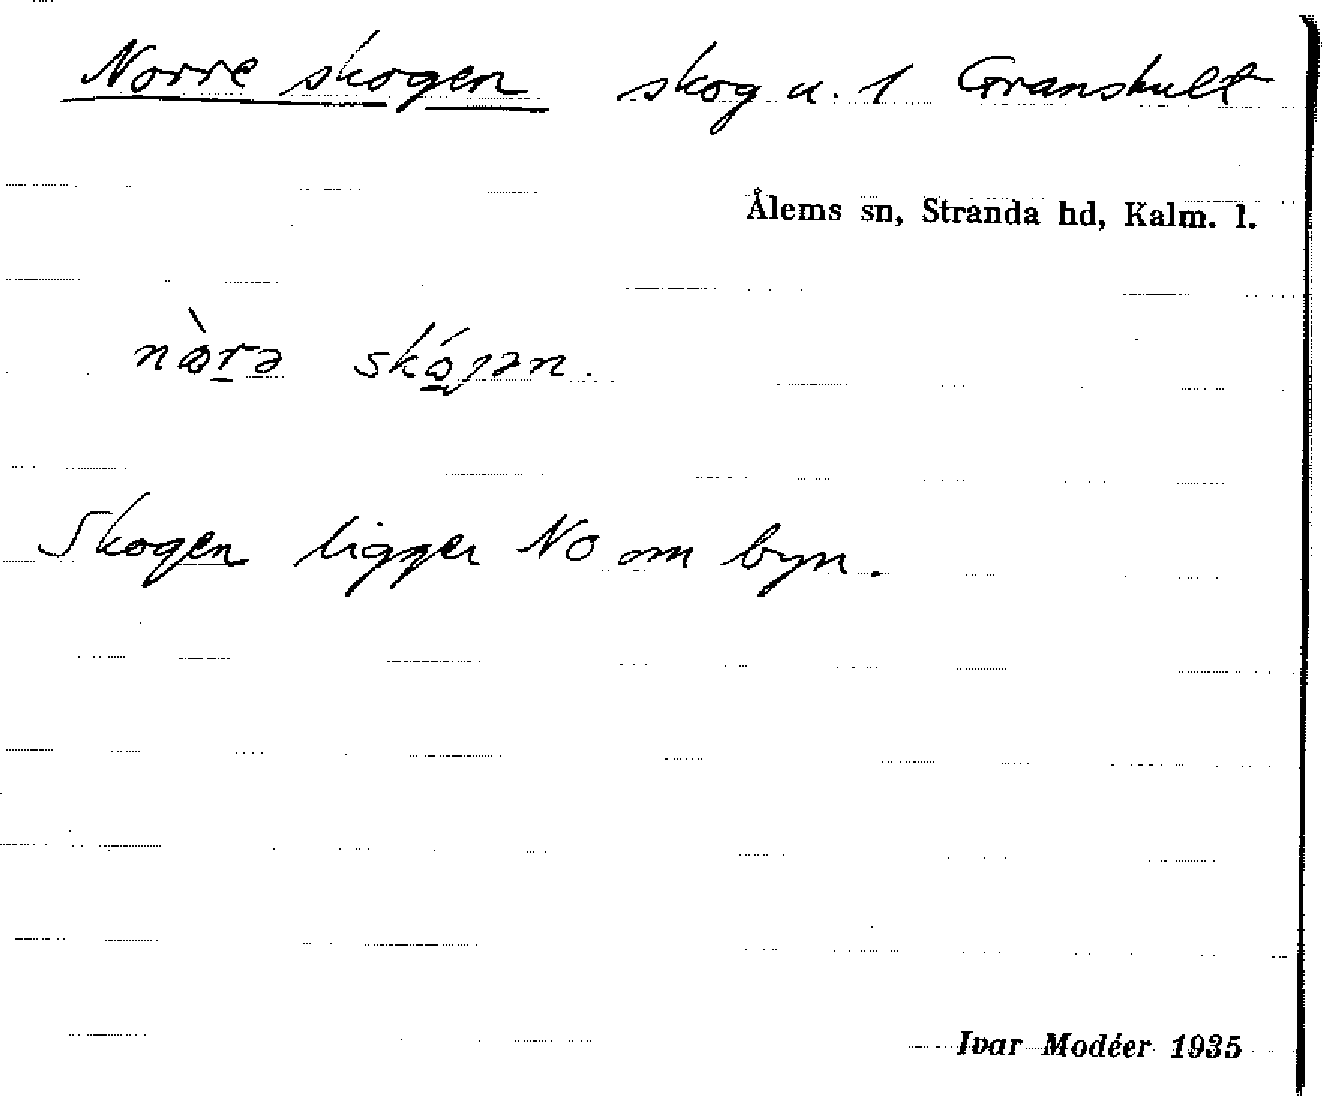 Norre skogen skog u. 1 Granshult
Ålems sn, Stranda hd, Kalm. l.
nòrə skógən.
Skogen ligger NO om byn.
Ivar Modéer 1935